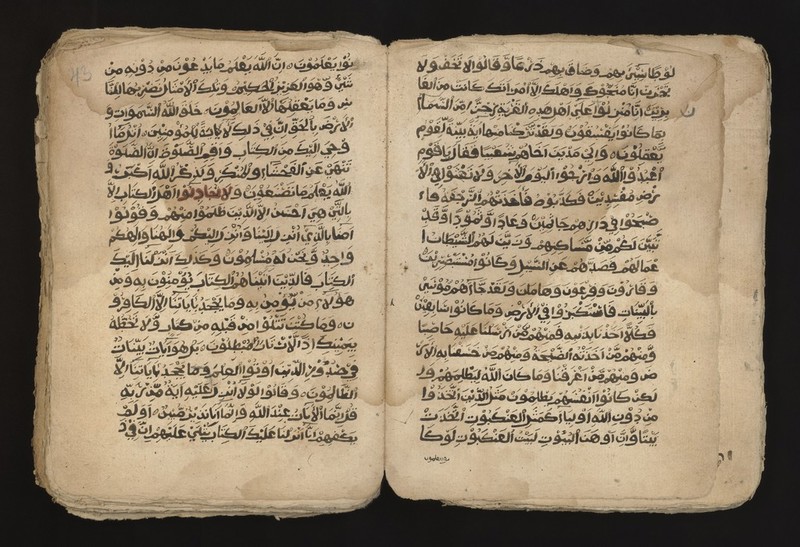 لوطا سيء بهم وضاق بهم ذرعا وقالوا لا تخف ولا
تحزن انا منجوك واهلك الا امراتك كانت من الغا
برين انا منزلون على اهل هذه القرية رجزا من السماء
بما كانوا يفسقون ولقد تركنا منها اية بينة لقوم
يعقلون والى مدين اخاهم شعيبا فقال يا قوم
اعبدوا الله وارجوا اليوم الاخر ولا تعثوا في الا
رض مفسدين فكذبوه فاخذتهم الرجفة فا
صبحوا في دارهم جاثمين وعادا وثمودا وقد
تبين لكم من مساكنهم وزين لهم الشيطان ا
عمالهم فصدهم عن السبيل وكانوا مستبصرين
وقارون وفرعون وهامان ولقد جاءهم موسى
بالبينات فاستكبروا في الارض وما كانوا سابقين
فكلا اخذنا بذنبه فمنهم من ارسلنا عليه حاصبا
ومنهم من اخذته الصيحة ومنهم من خسفنا به الار
ض ومنهم من اغرقنا وما كان الله ليظلمهم و
لكن كانوا انفسهم يظلمون مثل الذين اتخذوا
من دون الله اولياء كمثل العنكبوت اتخذت
بيتا وان اوهن البيوت لبيت العنكبوت لو كا
نوا يعلمون
نوا يعلمون ان الله يعلم ما يدعون من دونه من
شيء وهو العزيز الحكيم وتلك الامثال نضربها للنا
س وما يعقلها الا العالمون خلق الله السموات و
الارض بالحق ان في ذلك لاية للمؤمنين اتل ما ا
وحي اليك من الكتاب واقم الصلوة ان الصلوة
تنهى عن الفحشاء والمنكر ولذكر الله اكبر و
الله يعلم ما تصنعون ولا تجادلوا اهل الكتاب الا
بالتي هي احسن الا الذين ظلموا منهم وقولوا
امنا بالذي انزل الينا وانزل اليكم والهنا والهكم
واحد ونحن له مسلمون وكذلك انزلنا اليك
الكتاب فالذين اتيناهم الكتاب يؤمنون به ومن
هؤلاء من يؤمن به وما يجحد باياتنا الا الكافرو
ن وما كنت تتلوا من قبله من كتاب ولا تخطه
بيمينك اذا لارتاب المبطلون بل هو ايات بينات
في صدور الذين اوتوا العلم وما يجحد باياتنا الا
الظالمون وقالوا لولا انزل عليه اية من ربه
قل انما الايات عند الله وانما انا نذير مبين اولم
يكفهم انا انزلنا عليك الكتاب يتلى عليهم ان في ذ